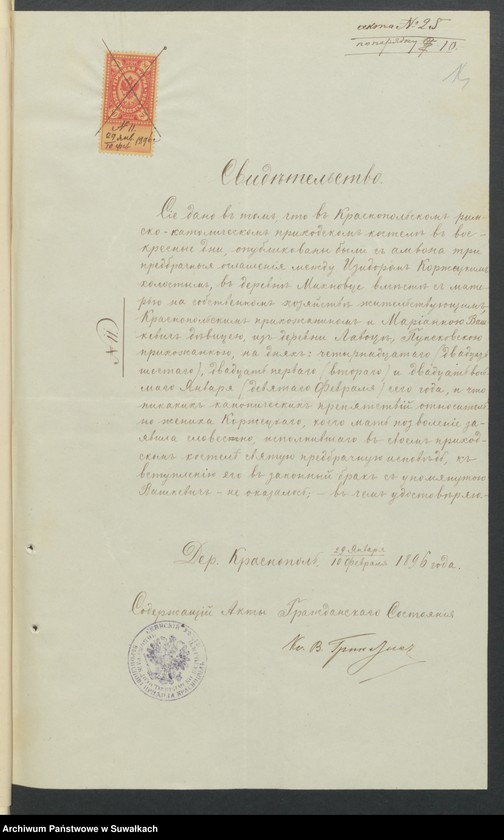 № 25
№ 11.
Свидѣтельство.
Сіе дано въ томъ, что въ Краснопольскомъ рим-
ско-католическомъ приходскомъ костелѣ въ вос-
кресные дни, опубликованы были съ амвона три
предбрачныя оглашенія между Изидоромъ
холостымъ, въ деревнѣ вмѣстѣ съ мате-
рью на собственномъ хозяйствѣ жительствующимъ
Краснопольскимъ прихожаниномъ и Маріанною Ваш-
кевичъ дѣвицею, изъ деревни Пунсковскою
прихожанкою, на дняхъ: четырнадцатаго (двадцать
шестаго), двадцать перваго (втораго) и двадцать вось-
маго Января (девятаго Февраля) сего года, и что
никакихъ каноническихъ препятствій относитель-
но жениха коего мать позволеніе за-
явила словестно, исполнившаго въ своемъ приход-
скомъ костелѣ святую предбрачную исповѣдь, къ
вступленію его въ законный бракъ съ упомянутою
Вашкевичъ – не оказалось; – въ чемъ удостовѣряю.
№ 11
Дер. Краснополь 29 Января / 10 Февраля 1896 года.
Содержащій Акты Гражданскаго Состоянія
Кс. В.
Archiwum Państwowe w Suwałkach